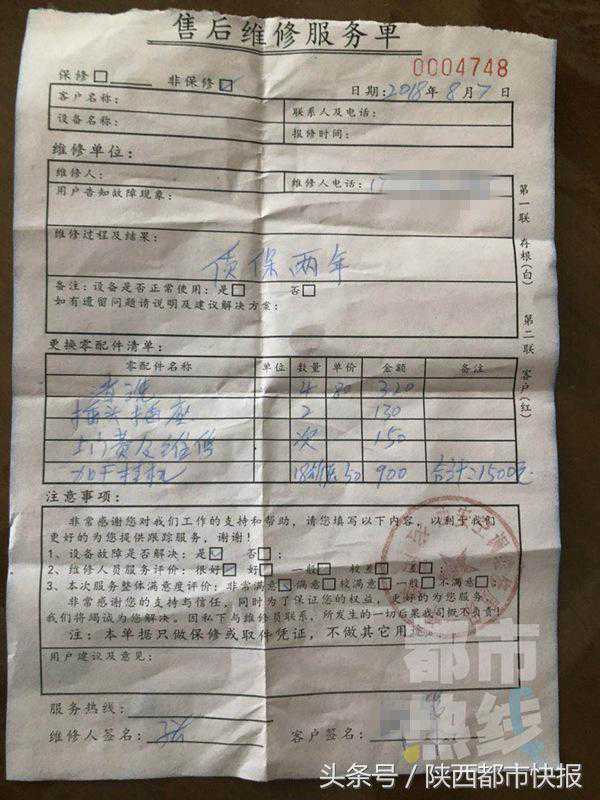 售后维修服务单
0004748
保修□ 非保修☑
日期:2018年8月7日
客户名称: 联系人及电话:
设备名称: 报修时间:
维修单位:
维修人: 维修人电话:
用户告知故障现象:
维修过程及结果:
质保两年
备注:设备是否正常使用:是□ 否□
如有遗留问题请说明及建议解决方案:
第一联 存根(白) 第二联 客户(红)
更换零配件清单:
零配件名称 单位 数量 单价 金额 备注
清洗 4 80 320
插头插座 2 130
上门费及维修 次 150
加 柜机 50 900 合计:1500元
注意事项:
非常感谢您对我们工作的支持和帮助,请您填写以下内容,以利于我们
更好的为您提供跟踪服务,谢谢!
1、设备故障是否解决:是☑ 否□;
2、维修人员服务评价:很好☑ 好□ 一般□ 较差□ 差□;
3、本次服务整体满意度评价:非常满意☑满意□较满意□一般□不满意□;
非常感谢您的支持与信任,同时为了保证您的权益,更好的为您服务,
我们将竭诚为您解决。因私下与维修员联系,所发生的一切后果我司概不负责!
注:本单据只做保修或取件凭证,不做其它用途
用户建议及意见:
服务热线:
维修人签名: 客户签名:
都市
热线
头条号/陕西都市快报